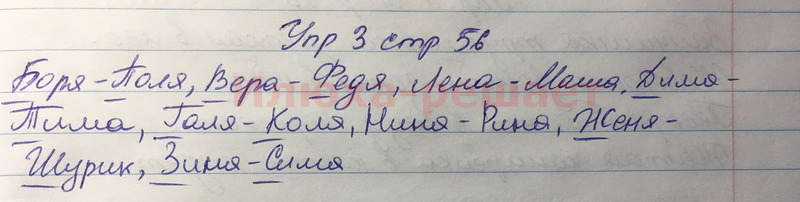 Упр 3 стр 56
Боря - Поля, Вера - Федя, Лена - Маша, Дима -
Тима, Галя - Коля, Нина - Рина, Женя -
Шурик, Зина - Сима
Илюха решает